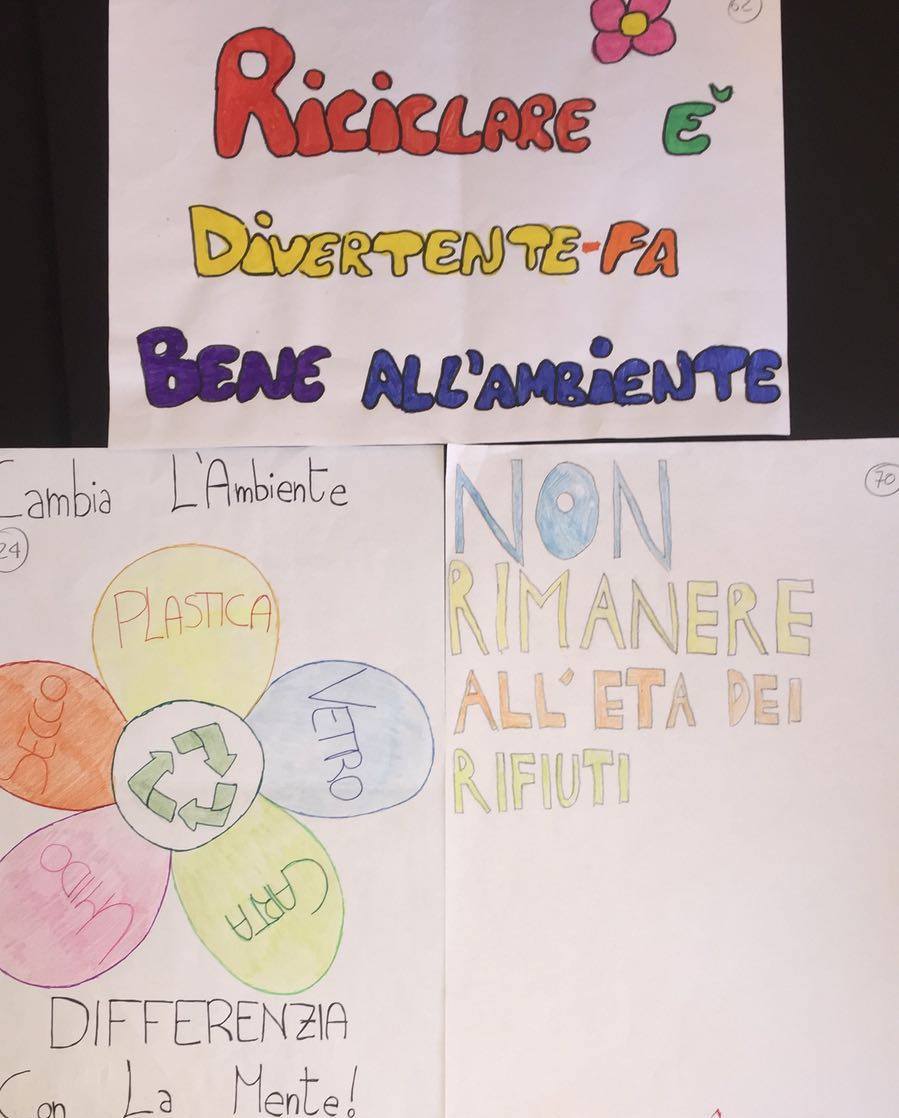 62
RiCiCLARE E'
DiVERTENTE-FA
BENE ALL'AMBiENTE
Cambia L'Ambiente
24
PLASTICA
VETRO
CARTA
UMIDO
SECCO
DIFFERENZIA
Con La Mente!
70
NON
RIMANERE
ALL'ETA DEI
RIFIUTI